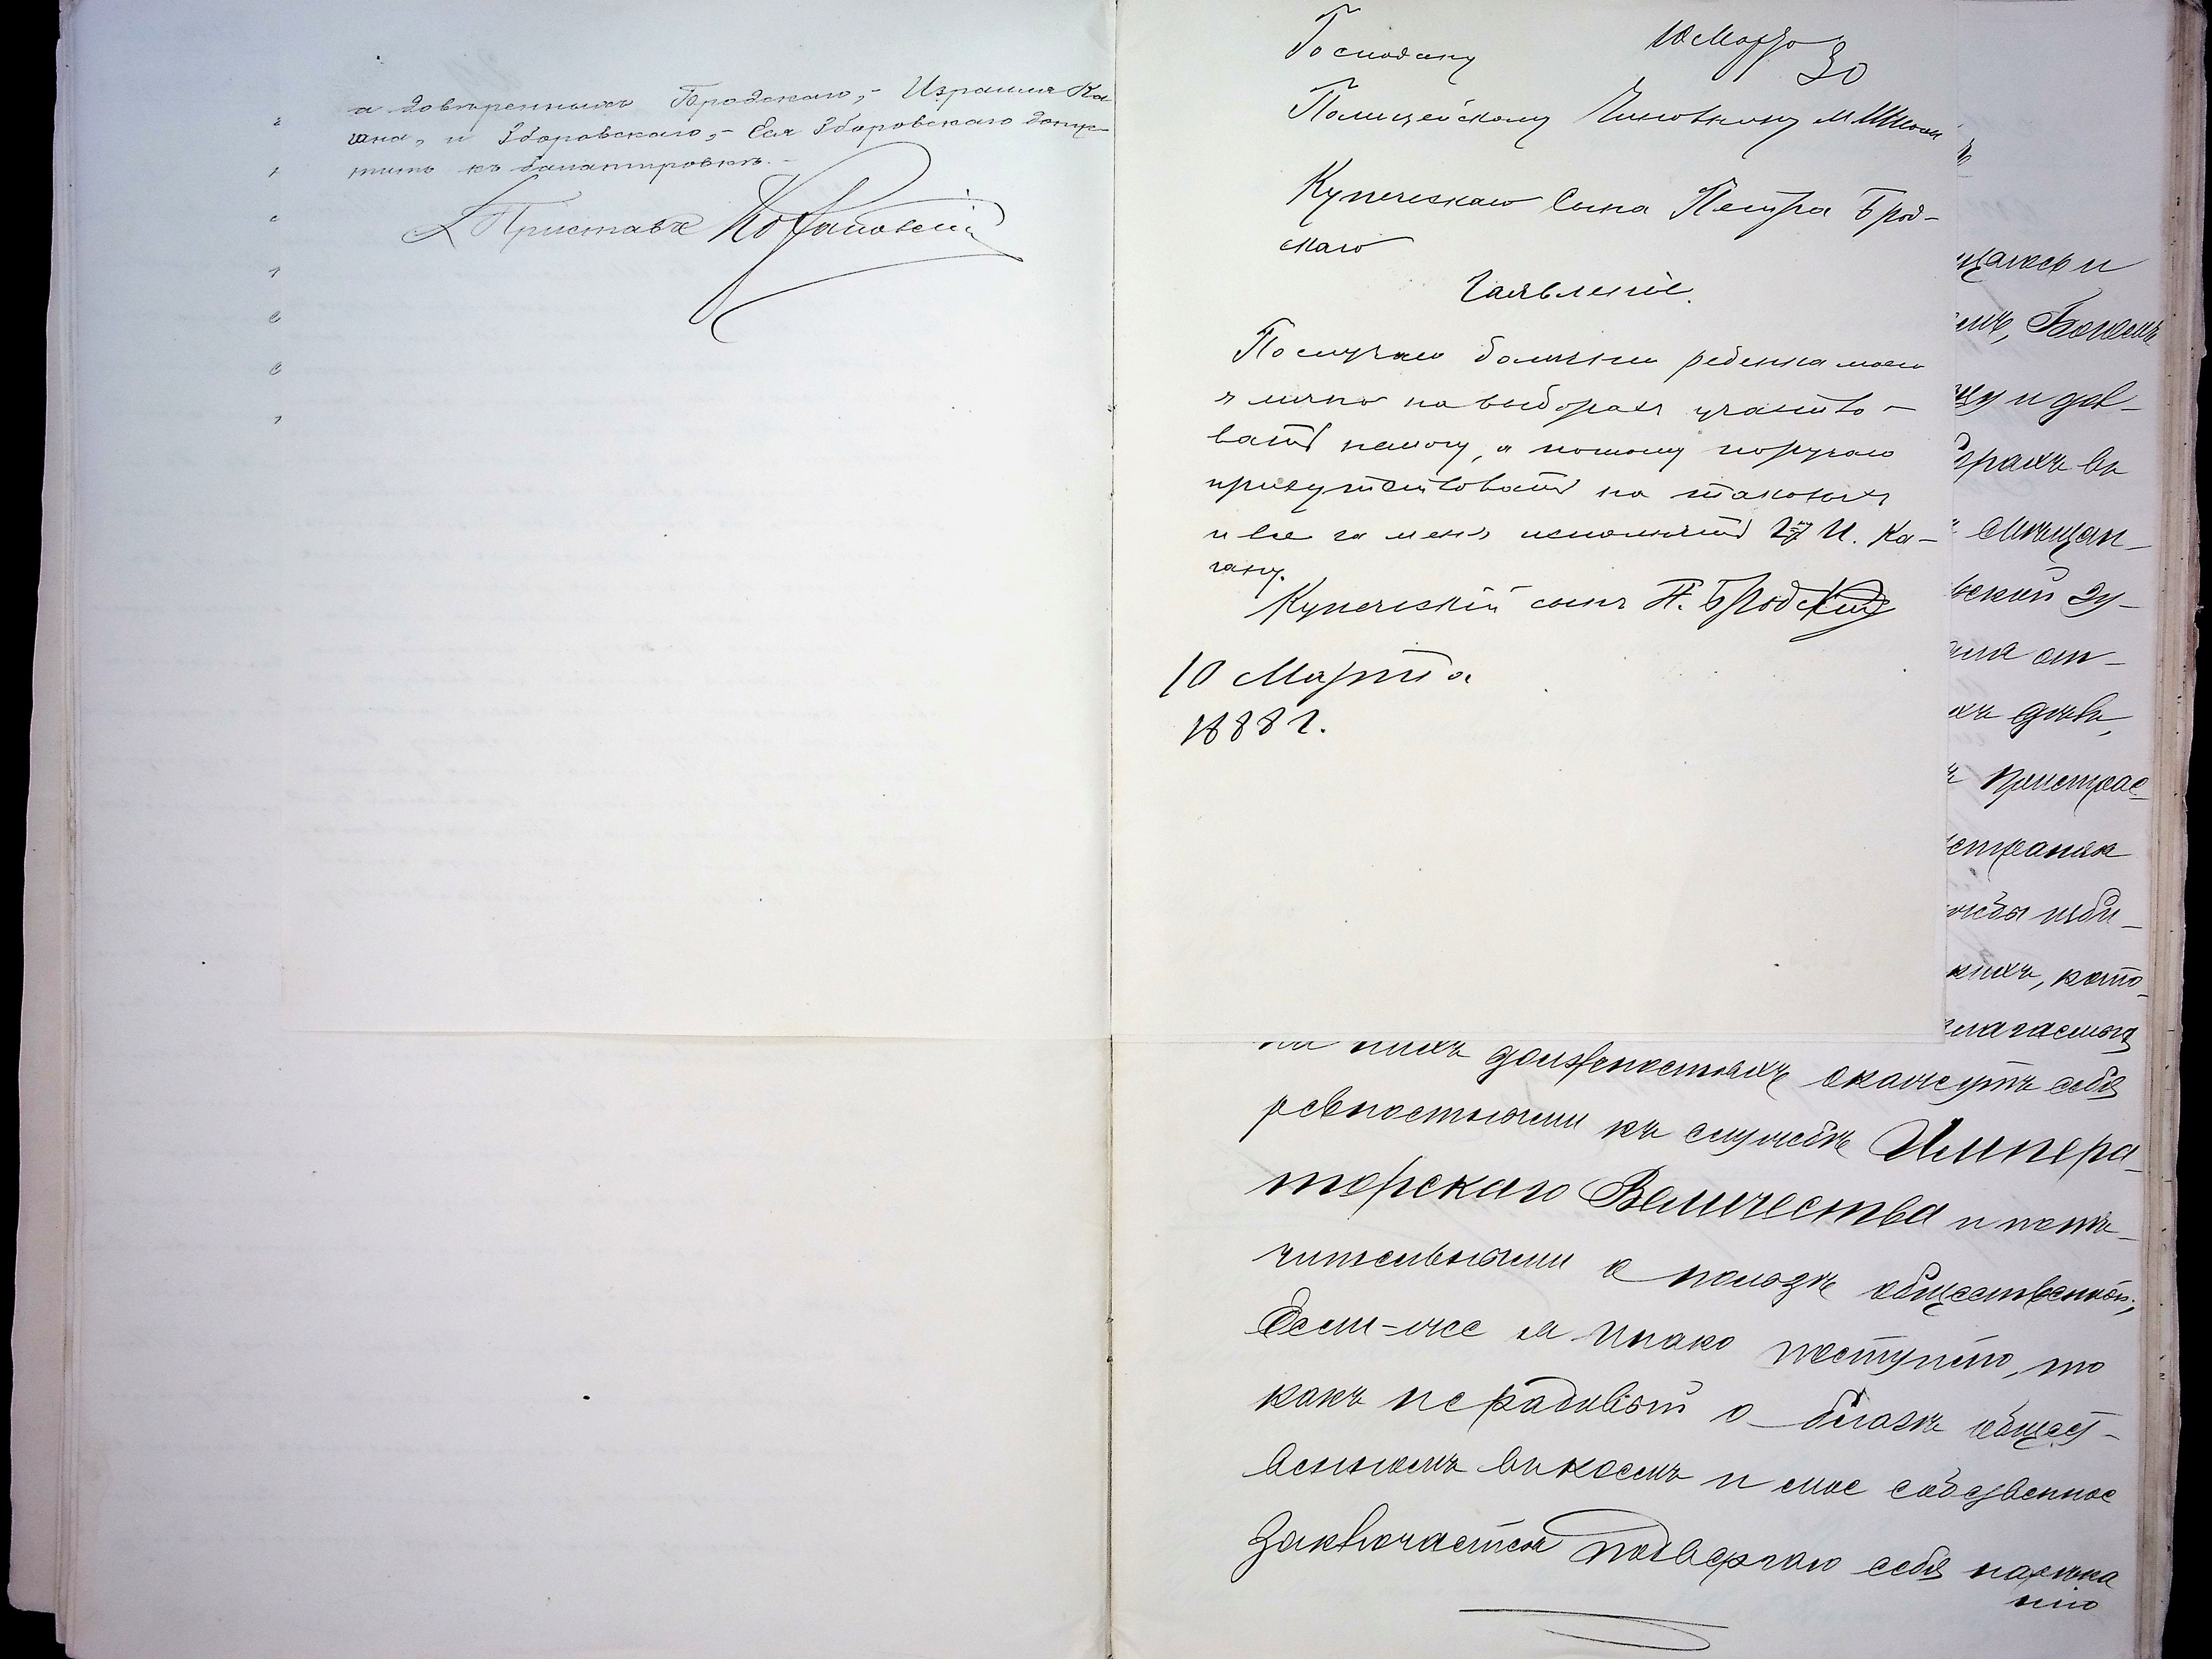 а довѣренныхъ Бродскаго,- Израиля Ка-
гана, и Зборовскаго,- Ея Зборовскаго допус-
тить къ балатировкѣ.-
Приставъ
10 Марта
30
Господину
Полицейскому Чиновнику м Шполы
Купеческаго Сына Петра Брод-
скаго
Заявленіе.
По случаю болѣзни ребенка моего
я лично на выборахъ участво-
вать немогу, а потому поручаю
присутствовать на таковыхъ
и все за меня исполнять И. Ка-
гану.
Купеческій сынъ П. Бродскій
10 Марта
1888 г.
щаюсь и
Божьемъ
цу и
борахъ въ
мѣщан-
ской
для от-
ахъ дѣлъ,
пристрас-
жбы изби-
кихъ, кото-
лагаемыхъ
на нихъ должностяхъ окажутъ себя
ревностными къ службѣ Импера-
торскаго Величества и попе-
чительными о пользѣ общественной;
Если-же я инако поступлю, то
какъ нерадивый о благѣ общест-
венномъ въ коемъ и мое собственное
Заключается подвергаю себя нарѣка
нію